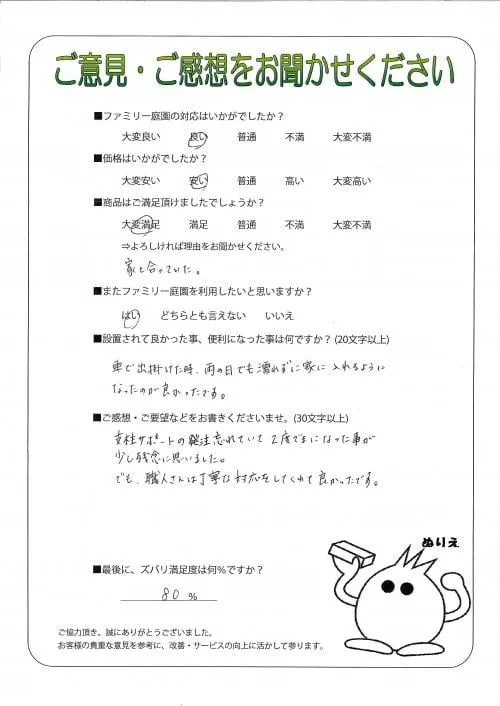 ご意見・ご感想をお聞かせください
■ファミリー庭園の対応はいかがでしたか？
大変良い 良い 普通 不満 大変不満
■価格はいかがでしたか？
大変安い 安い 普通 高い 大変高い
■商品はご満足頂けましたでしょうか？
大変満足 満足 普通 不満 大変不満
⇒よろしければ理由をお聞かせください。
家と合っていた。
■またファミリー庭園を利用したいと思いますか？
はい どちらとも言えない いいえ
■設置されて良かった事、便利になった事は何ですか？(20文字以上)
車で出掛けた時、雨の日でも濡れずに家に入れるように
なったのが良かったです。
■ご感想・ご要望などをお書きくださいませ。(30文字以上)
支柱サポートの発注忘れていて 2度でまになった事が
少し残念に思いました。
でも、職人さんは丁寧な対応をしてくれて良かったです。
ぬりえ
■最後に、ズバリ満足度は何％ですか？
80 %
ご協力頂き、誠にありがとうございました。
お客様の貴重な意見を参考に、改善・サービスの向上に活かして参ります。